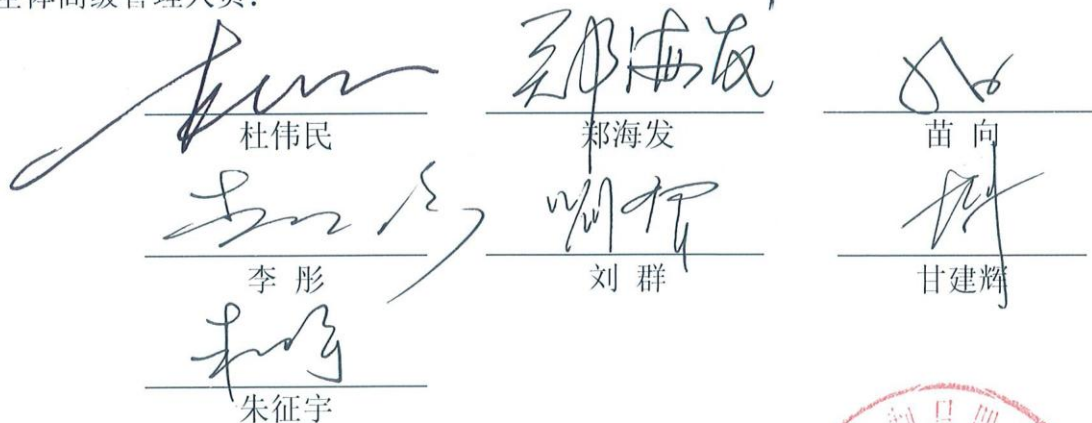 全体高级管理人员：
杜伟民 郑海发 苗 向
李 彤 刘 群 甘建辉
朱征宇